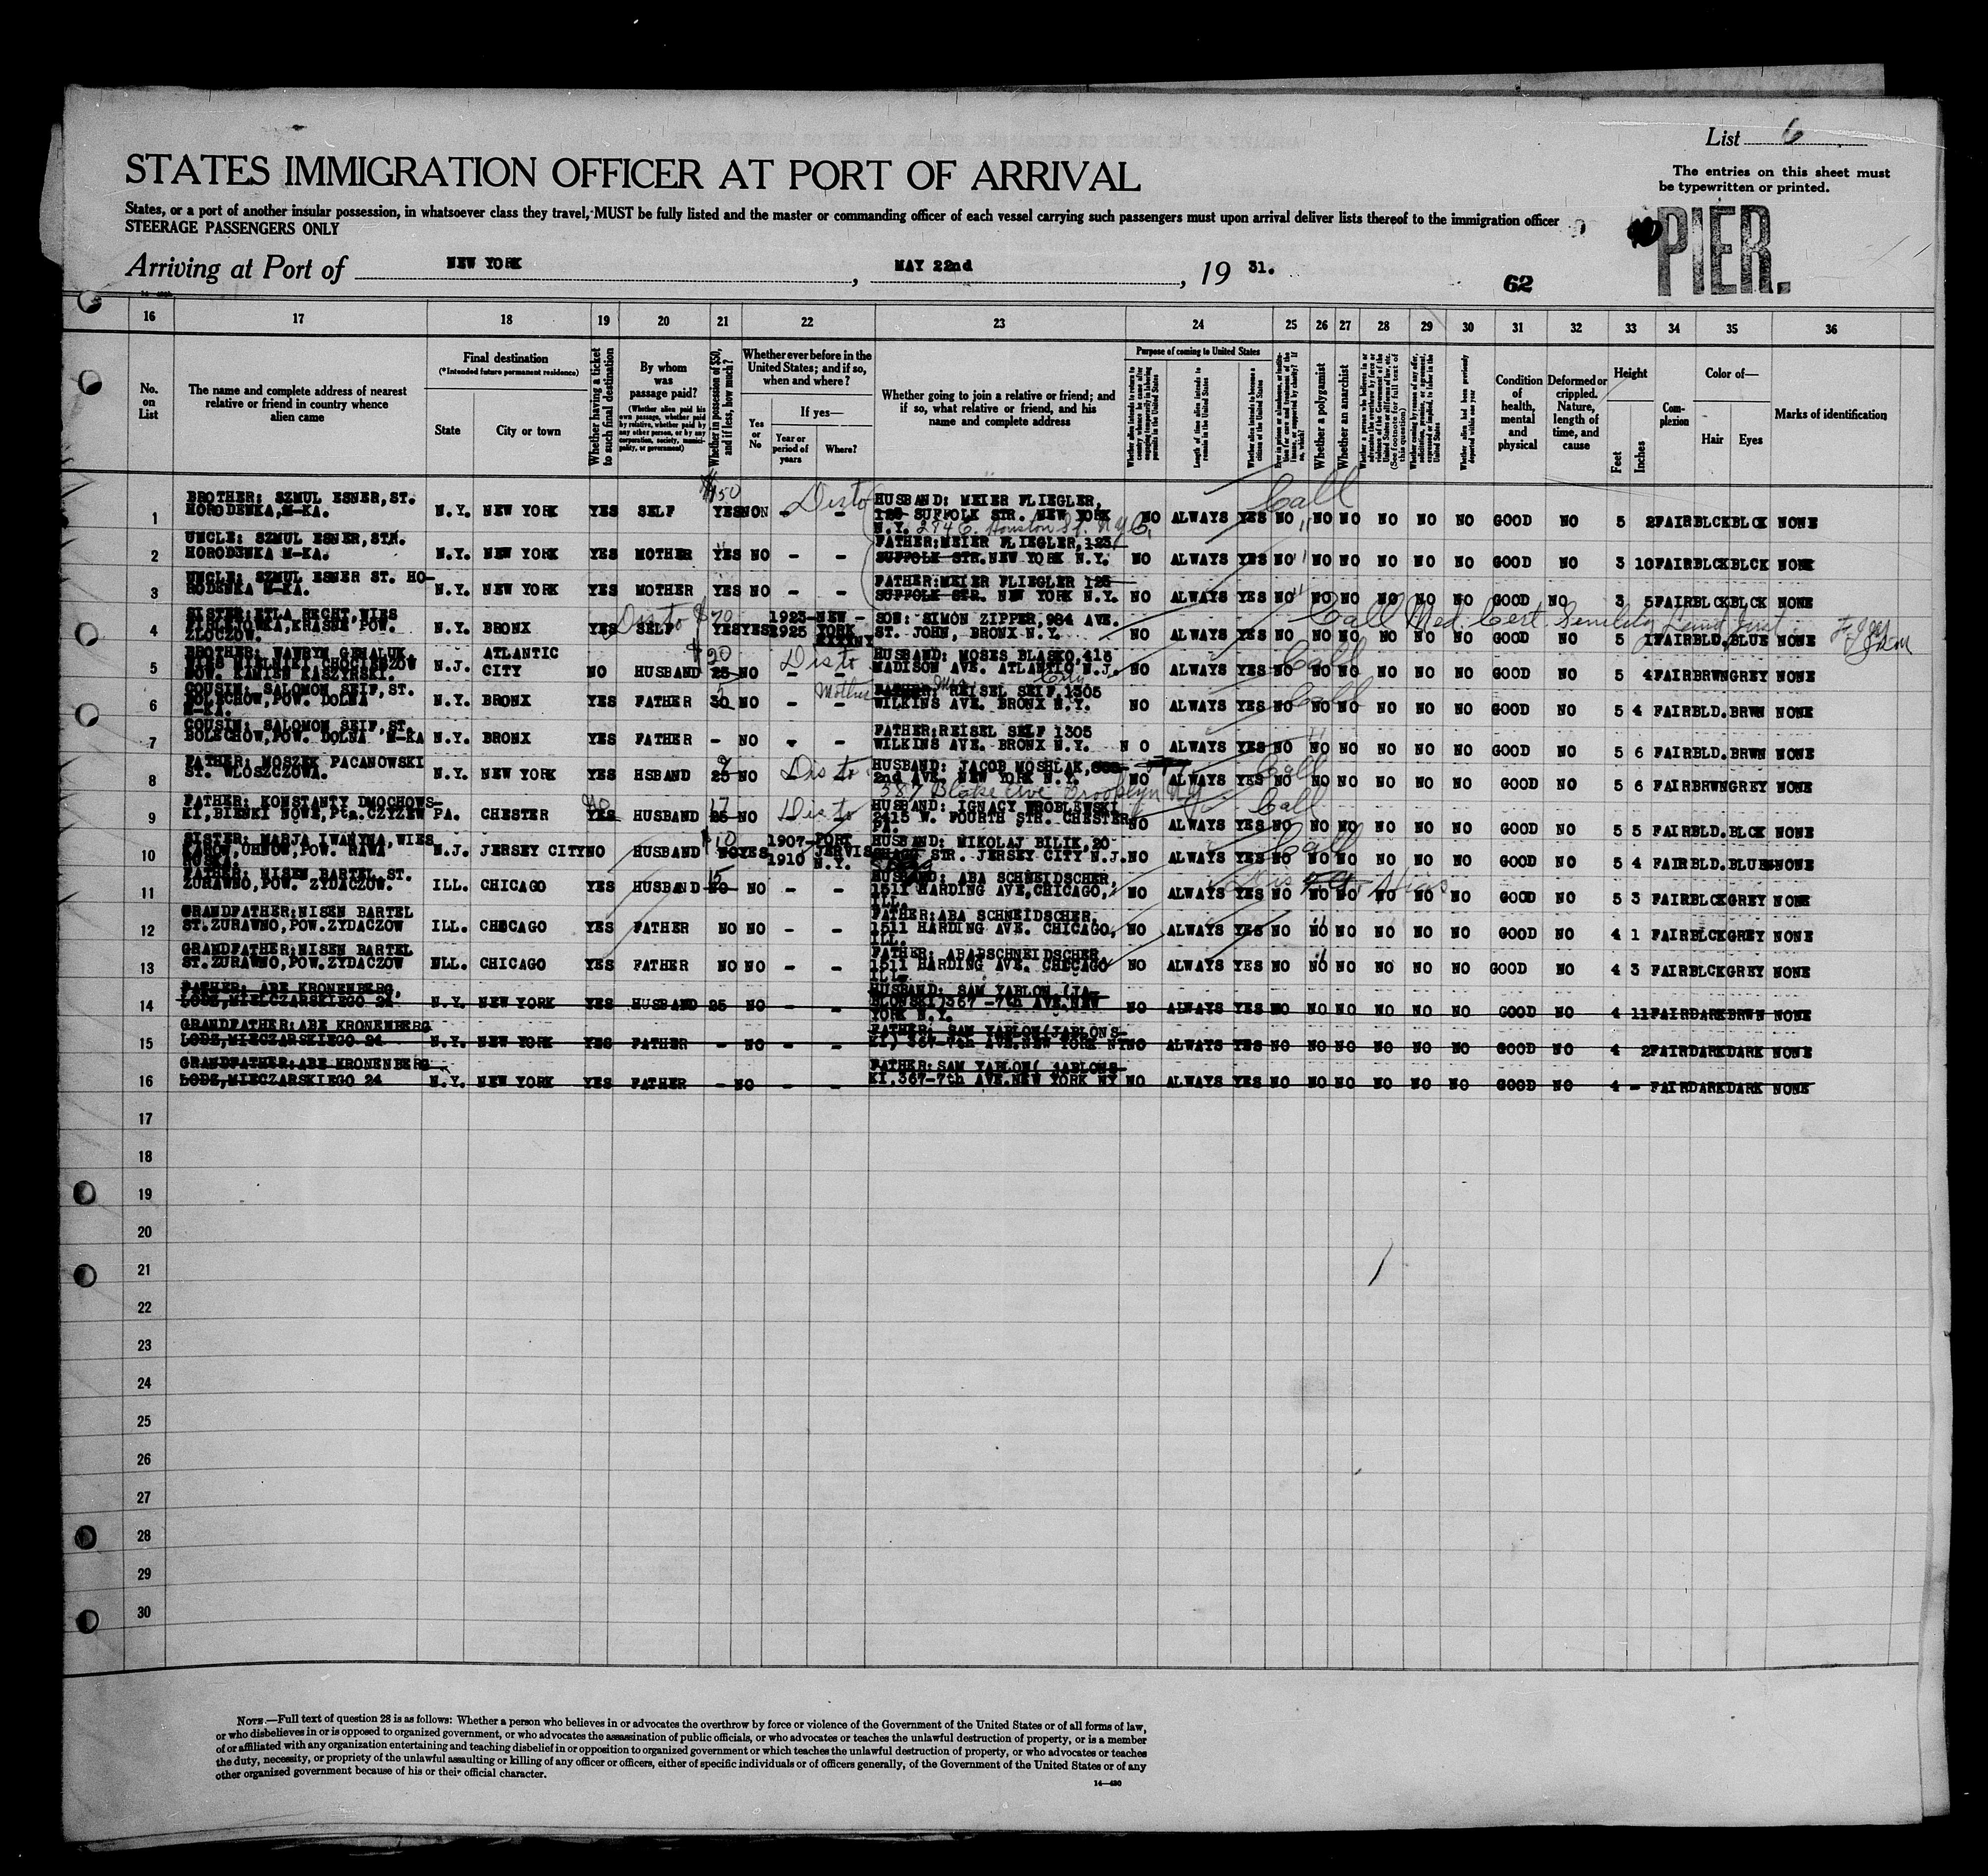 List 6
The entries on this sheet must
be typewritten or printed.
STATES IMMIGRATION OFFICER AT PORT OF ARRIVAL
States, or a port of another insular possession, in whatsoever class they travel, MUST be fully listed and the master or commanding officer of each vessel carrying such passengers must upon arrival deliver lists thereof to the immigration officer
STEERAGE PASSENGERS ONLY
PIER.
Arriving at Port of NEW YORK, MAY 22nd, 19 31.
62
16 17 18 19 20 21 22 23 24 25 26 27 28 29 30 31 32 33 34 35 36
No. on List
The name and complete address of nearest relative or friend in country whence alien came
Final destination
(*Intended future permanent residence)
State
City or town
Whether having a ticket to such final destination
By whom was passage paid?
(Whether alien paid his own passage, whether paid by relative, whether paid by any other person, or by any corporation, society, municipality, or government)
Whether in possession of $50, and if less, how much?
Whether ever before in the United States; and if so, when and where?
Yes or No
If yes—
Year or period of years
Where?
Whether going to join a relative or friend; and if so, what relative or friend, and his name and complete address
Purpose of coming to United States
Length of time alien intends to remain in the United States
Whether alien intends to become a citizen of the United States
Whether a polygamist
Whether an anarchist
Whether alien had been previously deported within one year
Condition of health, mental and physical
Deformed or crippled. Nature, length of time, and cause
Height
Feet
Inches
Complexion
Color of—
Hair
Eyes
Marks of identification
1 BROTHER: SZMUL ESNER, ST. HORODENKA, M-KA. N.Y. NEW YORK YES SELF $150 YES NON - Disto HUSBAND: MEIER FLIEGLER, SUFFOLK STR. NEW YORK N.Y. 274 E. Houston St. N.Y.C. NO ALWAYS YES NO Call NO NO NO NO NO GOOD NO 5 2 FAIR BLCK BLCK NONE
2 UNCLE: SZMUL ESNER, STR. HORODENKA M-KA. N.Y. NEW YORK YES MOTHER YES NO - - FATHER: MEIER FLIEGLER, 123 SUFFOLK STR. NEW YORK N.Y. NO ALWAYS YES NO " NO NO NO NO NO GOOD NO 3 10 FAIR BLCK BLCK NONE
3 UNCLE: SZMUL ESNER ST. HO-RODENKA M-KA. N.Y. NEW YORK YES MOTHER YES NO - - FATHER: MEIER FLIEGLER 125 SUFFOLK STR. NEW YORK N.Y. NO ALWAYS YES NO " NO NO NO NO NO GOOD NO 3 5 FAIR BLCK BLCK NONE
4 SISTER: ETLA HECHT, WIES KRASNE POW. ZLOCZOW. N.Y. BRONX YES Disto SELF $70 YES YES 1923-1925 NEW YORK SON: SIMON ZIPPER, 984 AVE. ST. JOHN, BRONX N.Y. NO ALWAYS YES NO Call Med. Cert. Senility NO NO NO NO NO GOOD NO 5 1 FAIR BLD. BLUE NONE
5 BROTHER: WAWRYN GEMALUK, WIES MIELNIKI CHOCIESZOW POW. KAMIEN KASZYRSKI. N.J. ATLANTIC CITY NO HUSBAND $20 25 NO Disto - - HUSBAND: MOSES BLASKO, 415 MADISON AVE. ATLANTIC City N.J. NO ALWAYS YES NO Call NO NO NO NO NO GOOD NO 5 4 FAIR BRWN GREY NONE
6 COUSIN: SALOMON SEIF, ST. BOLECHOW, POW. DOLNA M-KA. N.Y. BRONX YES FATHER 5 30 NO - - Mother FATHER: Mrs REISEL SEIF, 1305 WILKINS AVE. BRONX N.Y. NO ALWAYS YES NO Call NO NO NO NO NO GOOD NO 5 4 FAIR BLD. BRWN NONE
7 COUSIN: SALOMON SEIF, ST. BOLECHOW, POW. DOLNA M-KA N.Y. BRONX YES FATHER - NO - - FATHER: REISEL SELF 1305 WILKINS AVE. BRONX N.Y. N O ALWAYS YES NO " NO NO NO NO NO GOOD NO 5 6 FAIR BLD. BRWN NONE
8 FATHER: MOSZEK PACANOWSKI ST. WLOSZCZOWA. N.Y. NEW YORK YES HSBAND 25 NO Disto HUSBAND: JACOB MOSHLAK, 2nd AVE. NEW YORK N.Y. 387 Blake Ave Brooklyn N.Y. NO ALWAYS YES NO Call NO NO NO NO NO GOOD NO 5 6 FAIR BRWN GREY NONE
9 FATHER: KONSTANTY DMOCHOWS-KI, BIENKI NOWE, Pta. CZYZEW PA. CHESTER No YES HUSBAND 17 25 NO Disto HUSBAND: IGNACY WROBLEWSKI 2415 W. FOURTH STR. CHESTER PA. NO ALWAYS YES NO Call NO NO NO NO NO GOOD NO 5 5 FAIR BLD. BLCK NONE
10 SISTER: MARJA IWANYNA, WIES KAROW, UHNOW, POW. RAWA RUSKA. N.J. JERSEY CITY NO HUSBAND $10 NO YES 1907-1910 PORT JERVIS N.Y. HUSBAND: MIKOLAJ BILIK, 20 STR. JERSEY CITY N.J. NO ALWAYS YES NO Call NO NO NO NO NO GOOD NO 5 4 FAIR BLD. BLUE NONE
11 FATHER: NISEN BARTEL, ST. ZURAWNO, POW. ZYDACZOW. ILL. CHICAGO YES HUSBAND 15 NO - - HUSBAND: ABA SCHNEIDSCHER, 1511 HARDING AVE, CHICAGO, ILL. NO ALWAYS YES NO NO NO NO NO NO GOOD NO 5 3 FAIR BLCK GREY NONE
12 GRANDFATHER: NISEN BARTEL ST. ZURAWNO, POW. ZYDACZOW ILL. CHICAGO YES FATHER NO NO - - FATHER: ABA SCHNEIDSCHER, 1511 HARDING AVE. CHICAGO, ILL. NO ALWAYS YES NO " NO NO NO NO NO GOOD NO 4 1 FAIR BLCK GREY NONE
13 GRANDFATHER: NISEN BARTEL ST. ZURAWNO, POW. ZYDACZOW NLL. CHICAGO YES FATHER NO NO - - FATHER: ABA SCHNEIDSCHER 1511 HARDING AVE. CHICAGO ILL. NO ALWAYS YES NO " NO NO NO NO NO GOOD NO 4 3 FAIR BLCK GREY NONE
14 FATHER: ABE KRONENBERG, LODZ, MIELCZARSKIEGO 24 N.Y. NEW YORK YES HUSBAND 25 NO - - HUSBAND: SAM YABLON (JA-BLONSKI) 367 -7th AVE. NEW YORK N.Y. NO ALWAYS YES NO NO NO NO NO NO GOOD NO 4 11 FAIR DARK BRWN NONE
15 GRANDFATHER: ABE KRONENBERG LODZ, MIECZARSKIEGO 24 N.Y. NEW YORK YES FATHER - NO - - FATHER: SAM YABLON (JABLONS-KI) 367-7th AVE. NEW YORK NY NO ALWAYS YES NO NO NO NO NO NO GOOD NO 4 2 FAIR DARK DARK NONE
16 GRANDFATHER: ABE KRONENBERG LODZ, MIECZARSKIEGO 24 N.Y. NEW YORK YES FATHER - NO - - FATHER: SAM YABLON( JABLONS-KI, 367-7th AVE. NEW YORK NY NO ALWAYS YES NO NO NO NO NO NO GOOD NO 4 - FAIR DARK DARK NONE
17
18
19
20
21
22
23
24
25
26
27
28
29
30
NOTE.—Full text of question 28 is as follows: Whether a person who believes in or advocates the overthrow by force or violence of the Government of the United States or of all forms of law,
or who disbelieves in or is opposed to organized government, or who advocates the assassination of public officials, or who advocates or teaches the unlawful destruction of property, or is a member
of or affiliated with any organization entertaining and teaching disbelief in or opposition to organized government or which teaches the unlawful destruction of property, or who advocates or teaches
the duty, necessity, or propriety of the unlawful assaulting or killing of any officer or officers, either of specific individuals or of officers generally, of the Government of the United States or of any
other organized government because of his or their official character.
14—430